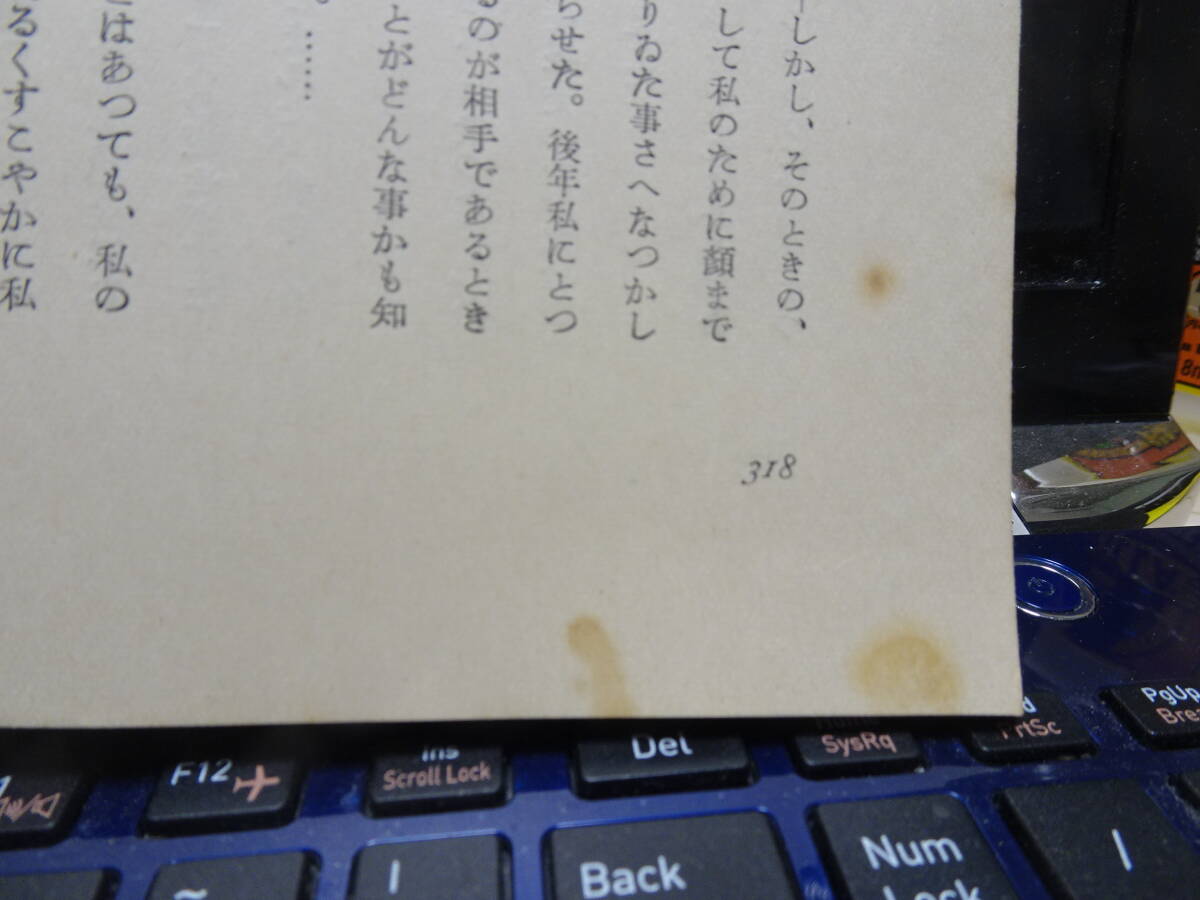 しかし、そのときの、
して私のために顔まで
りゐた事さへなつかし
らせた。後年私にとつ
るのが相手であるとき
とがどんな事かも知
。……
はあつても、私の
るくすこやかに私
318
PgUp
PrtSc
SysRq
Del
Ins
Scroll Lock
F12
Num
Lock
Back
~